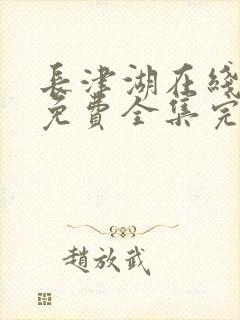 長津湖在綫
免費全集完
趙放武